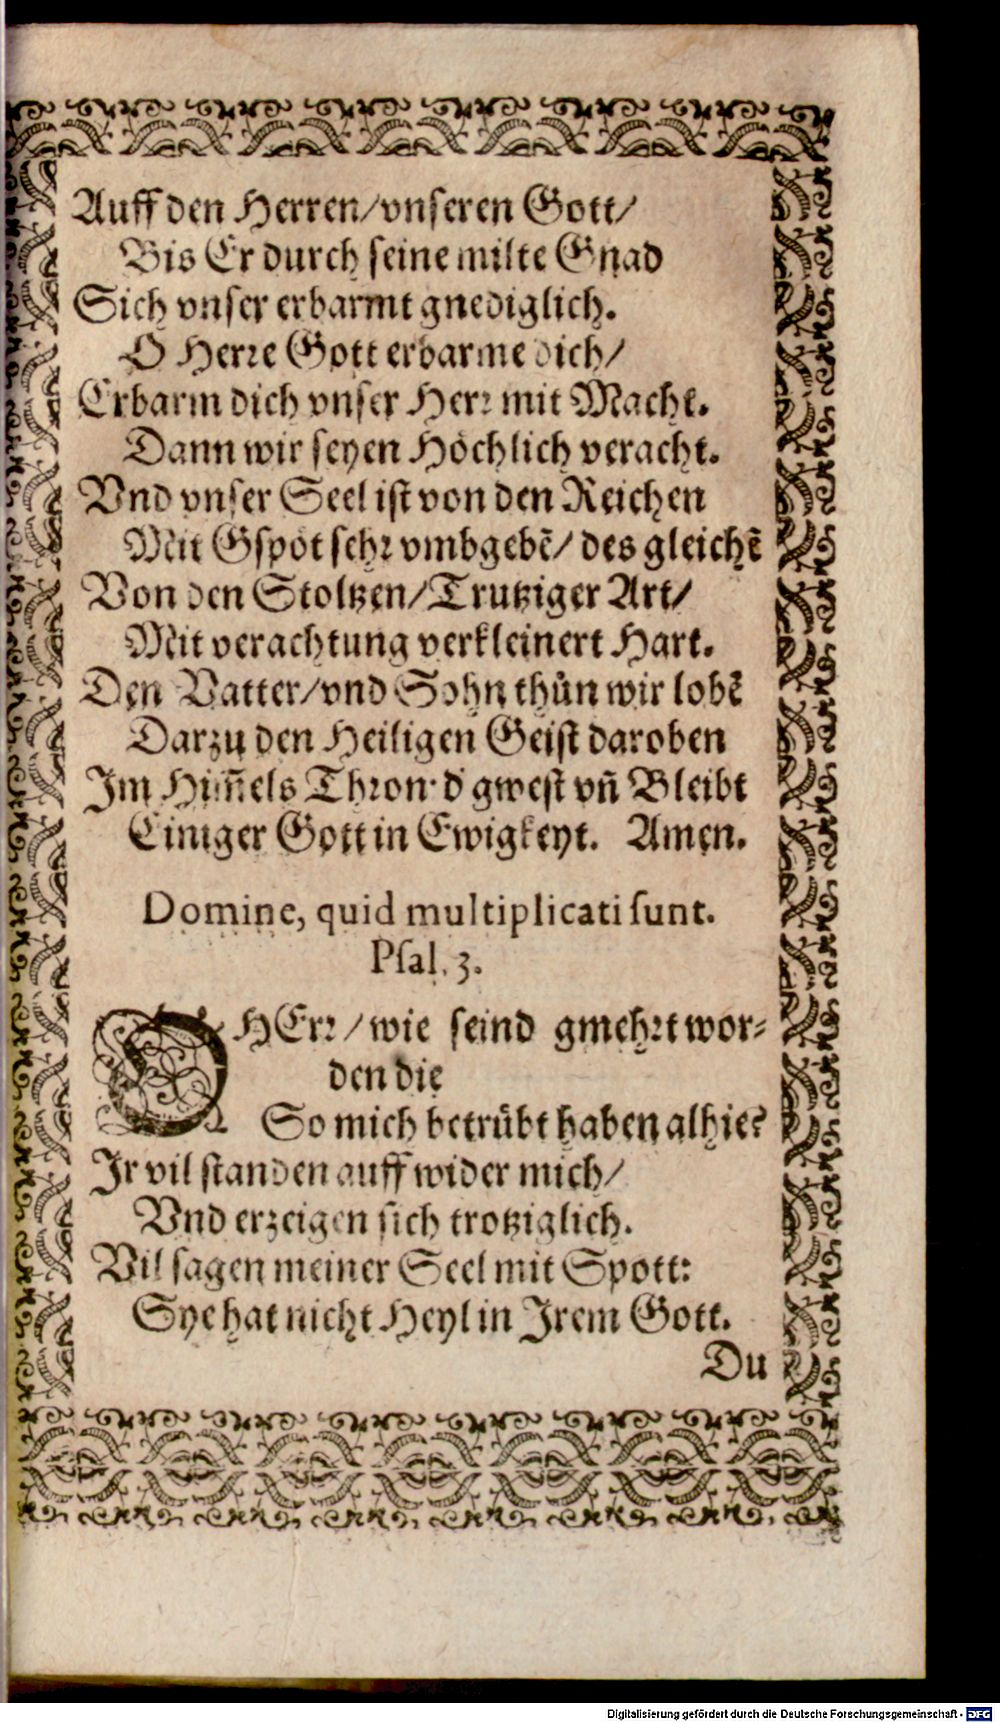 Auff den Herren/vnseren Gott/
Bis Er durch seine milte Gnad
Sich vnser erbarmt gnediglich.
O Herre Gott erbarme dich/
Erbarm dich vnser Herr mit Macht.
Dann wir seyen Höchlich veracht.
Vnd vnser Seel ist von den Reichen
Mit Gspöt sehr vmbgebẽ/ des gleichẽ
Von den Stoltzen/Trutziger Art/
Mit verachtung verkleinert Hart.
Den Vatter/vnd Sohn thůn wir lobẽ
Darzu den Heiligen Geist daroben
Im Him̃els Thron d' gwest vñ Bleibt
Einiger Gott in Ewigkeyt. Amen.
Domine, quid multiplicati sunt.
Psal. 3.
O HErr/wie seind gmehrt wor-
den die
So mich betrübt haben alhie?
Ir vil standen auff wider mich/
Vnd erzeigen sich trotziglich.
Vil sagen meiner Seel mit Spott:
Sye hat nicht Heyl in Irem Gott.
Du
Digitalisierung gefördert durch die Deutsche Forschungsgemeinschaft - DFG